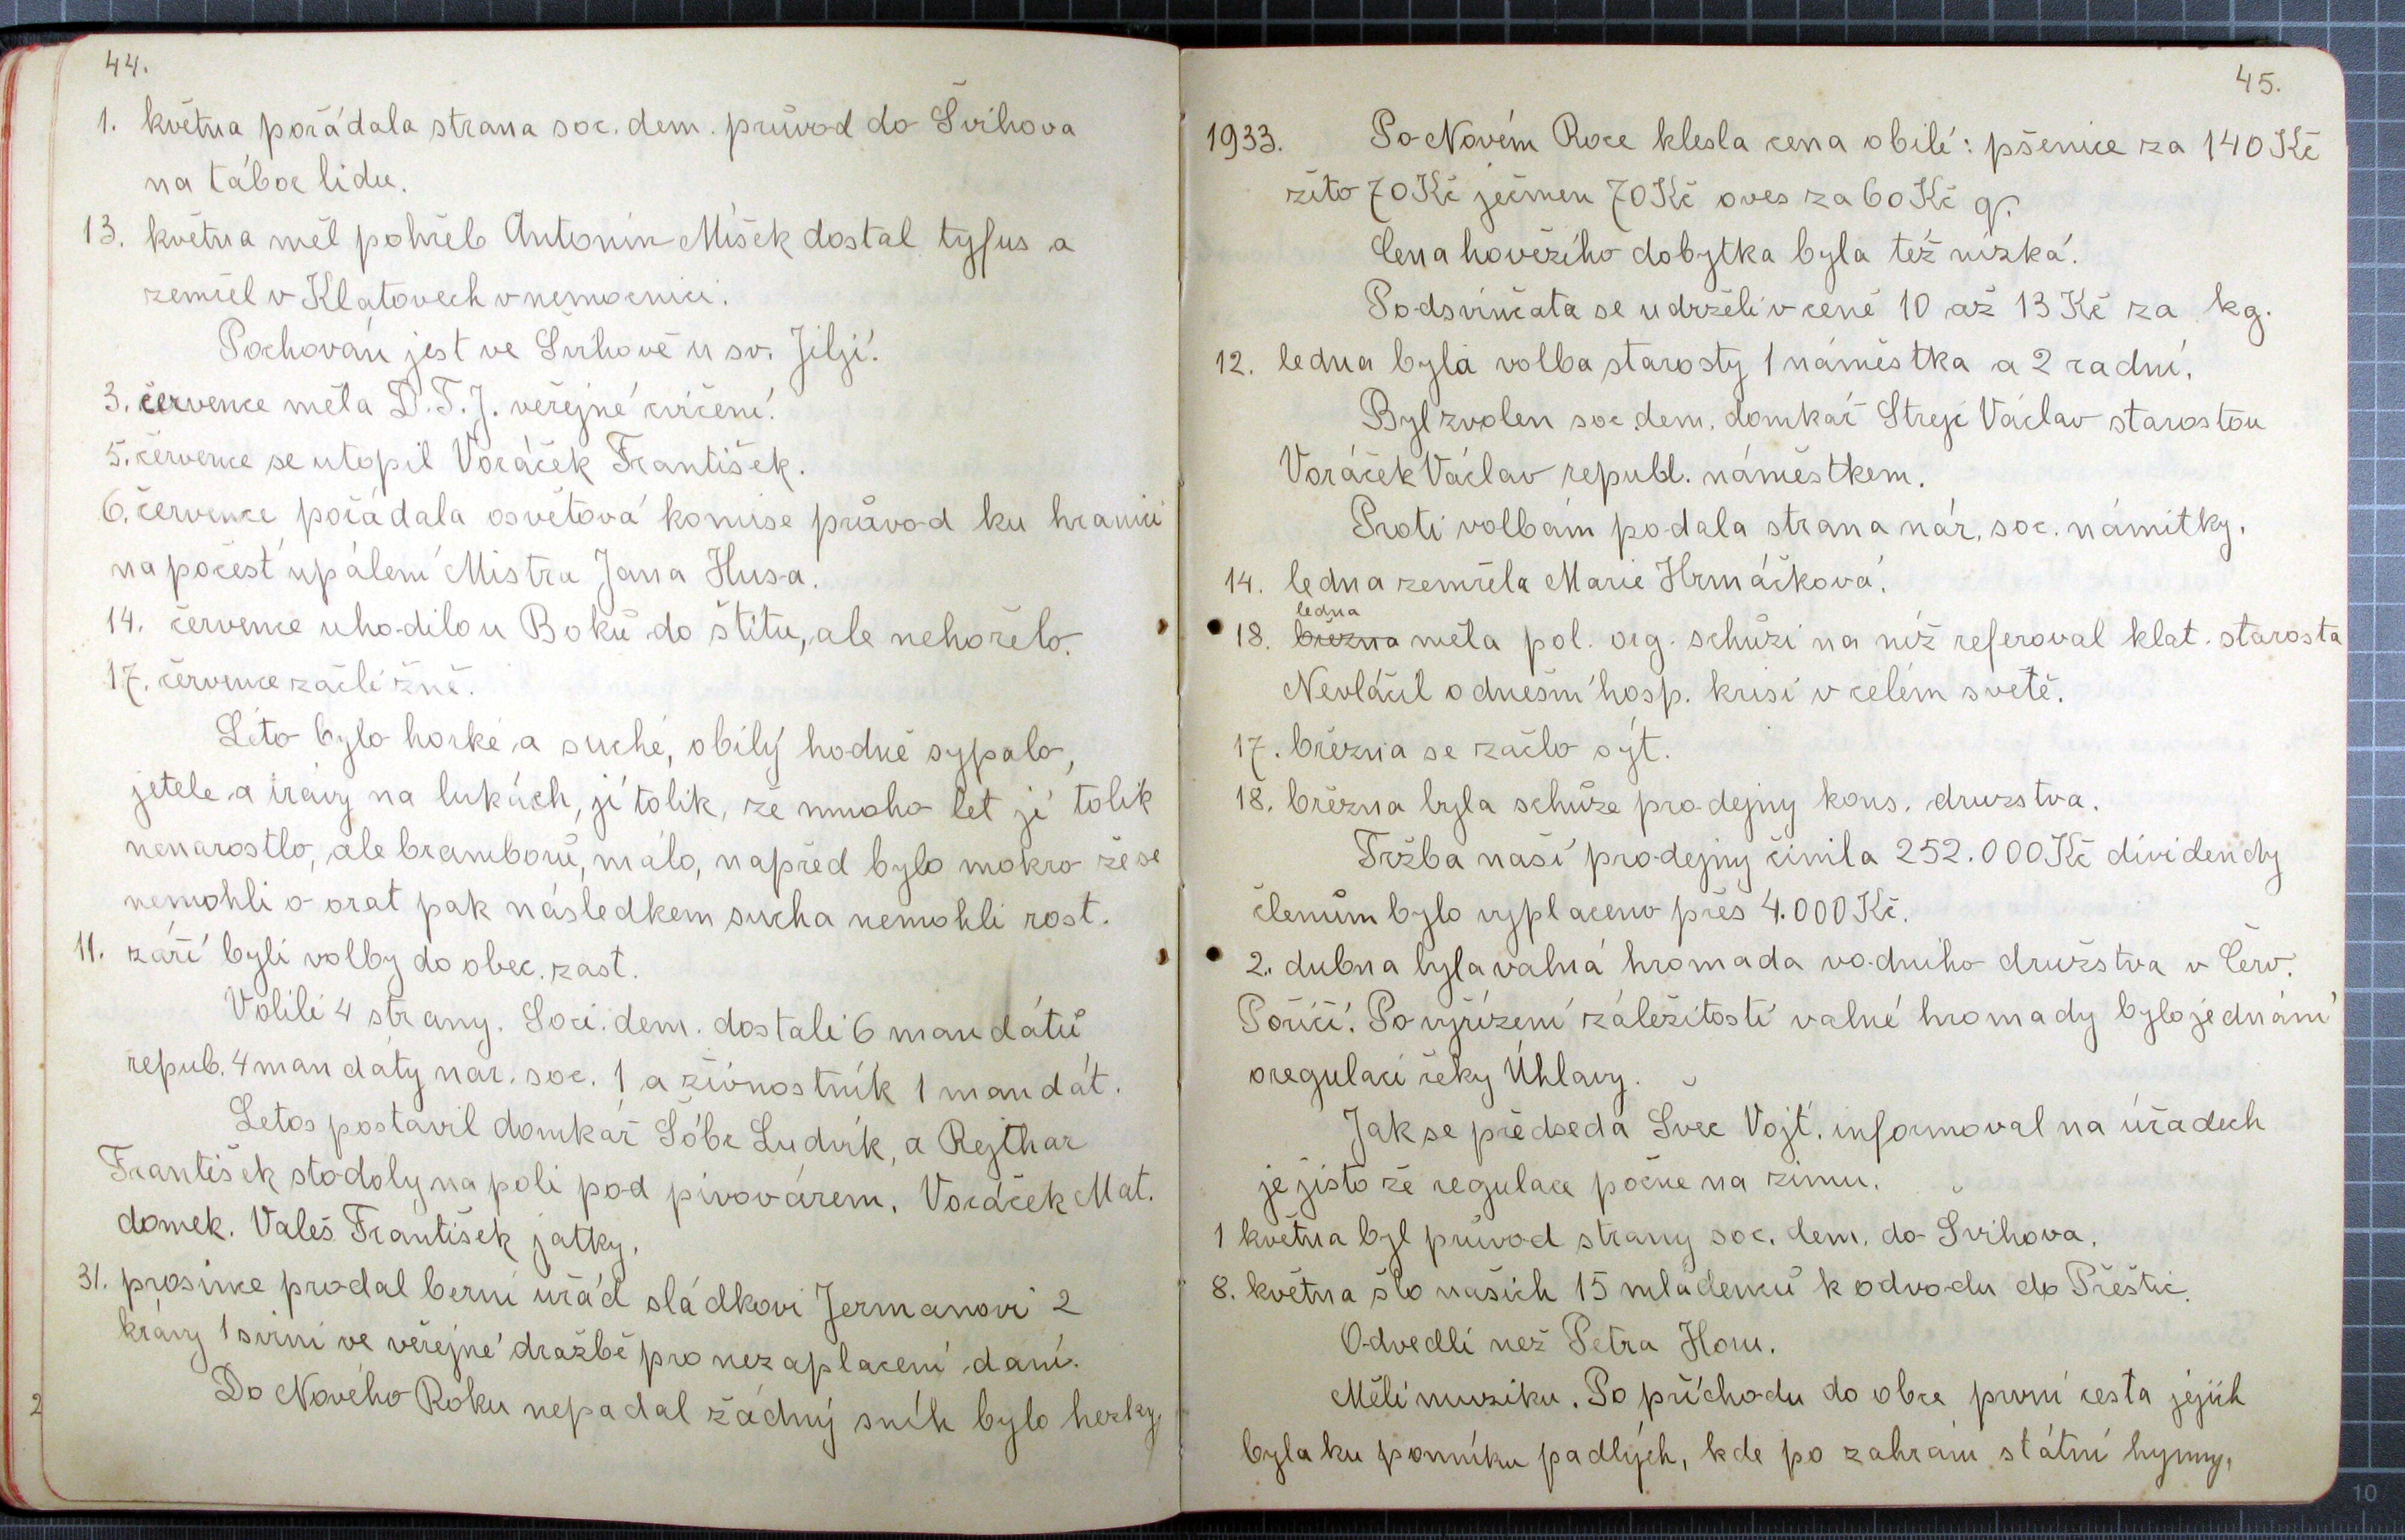 44.
1. května pořádala strana soc. dem. průvod do Švihova
na tábor lidu.
13. května měl pohřeb Antonín Míšek dostal tyfus a
zemřel v Klatovech v nemocnici.
Pochován jest ve Švihově u sv. Jiljí.
3. července měla D.T.J. veřejné cvičení.
5. července se utopil Voráček František.
6. července pořádala osvětová komise průvod ku hranici
na počest upálení Mistra Jana Husa.
14. července uhodilo u Boků do štítu, ale nehořelo.
17. července začli žně.
Léto bylo horké a suché, obilý hodně sypalo,
jetele a trávy na lukách, jí tolik, že mnoho let jí tolik
nenarostlo, ale bramborů, málo, napřed bylo mokro že se
nemohli o orat pak následkem sucha nemohli rost.
11. září byli volby do obec. zast.
Volili 4 strany. Soci. dem. dostali 6 mandátů
repub. 4 mandáty nár. soc. 1 a živnostník 1 mandát.
Letos postavil domkář Šóbr Ludvík, a Rejthar
František stodoly na poli pod pivovárem. Voráček Mat.
domek. Valeš František jatky.
31. prosince prodal berní uřád sládkovi Jermanovi 2
krávy 1 svini ve veřejné dražbě pro nezaplacení daní.
Do Nového Roku nepadal žádný sníh bylo hezky.
2
45.
1933. Po Novém Roce klesla cena obilí: pšenice za 140 Kč
žito 70 Kč ječmen 70 Kč oves za 60 Kč q.
Cena hovězího dobytka byla též nízká.
Podsvinčata se udrželi v ceně 10 až 13 Kč za kg.
12. ledna byla volba starosty 1 náměstka a 2 radní.
Byl zvolen soc. dem. domkář Strejc Václav starostou
Voráček Václav republ. náměstkem.
Proti volbám podala strana nár. soc. námitky.
14. ledna zemřela Marie Hrnáčková.
ledna
18. března měla pol. org. schůzi na níž referoval klat. starosta
Nevláčil o dnešní hosp. krisi v celém světě.
17. března se začlo sýt.
18. března byla schůze prodejny kons. družstva.
Tržba naší prodejny činila 252.000 Kč dividendy
členům bylo vyplaceno přes 4.000 Kč.
2. dubna byla valná hromada vodního družstva v Červ.
Poříčí. Po vyřízení záležitostí valné hromady bylo jednání
o regulaci řeky Úhlavy.
Jak se předseda Švec Vojt. informoval na úřadech
je jisto že regulace počne na zimu.
1 května byl průvod strany soc. dem. do Švihova.
8. května šlo našich 15 mládenců k odvodu do Přeštic.
Odvedli než Petra Horu.
Měli muziku. Po příchodu do obce první cesta jejich
byla ku pomníku padlých, kde po zahrání státní hymny,